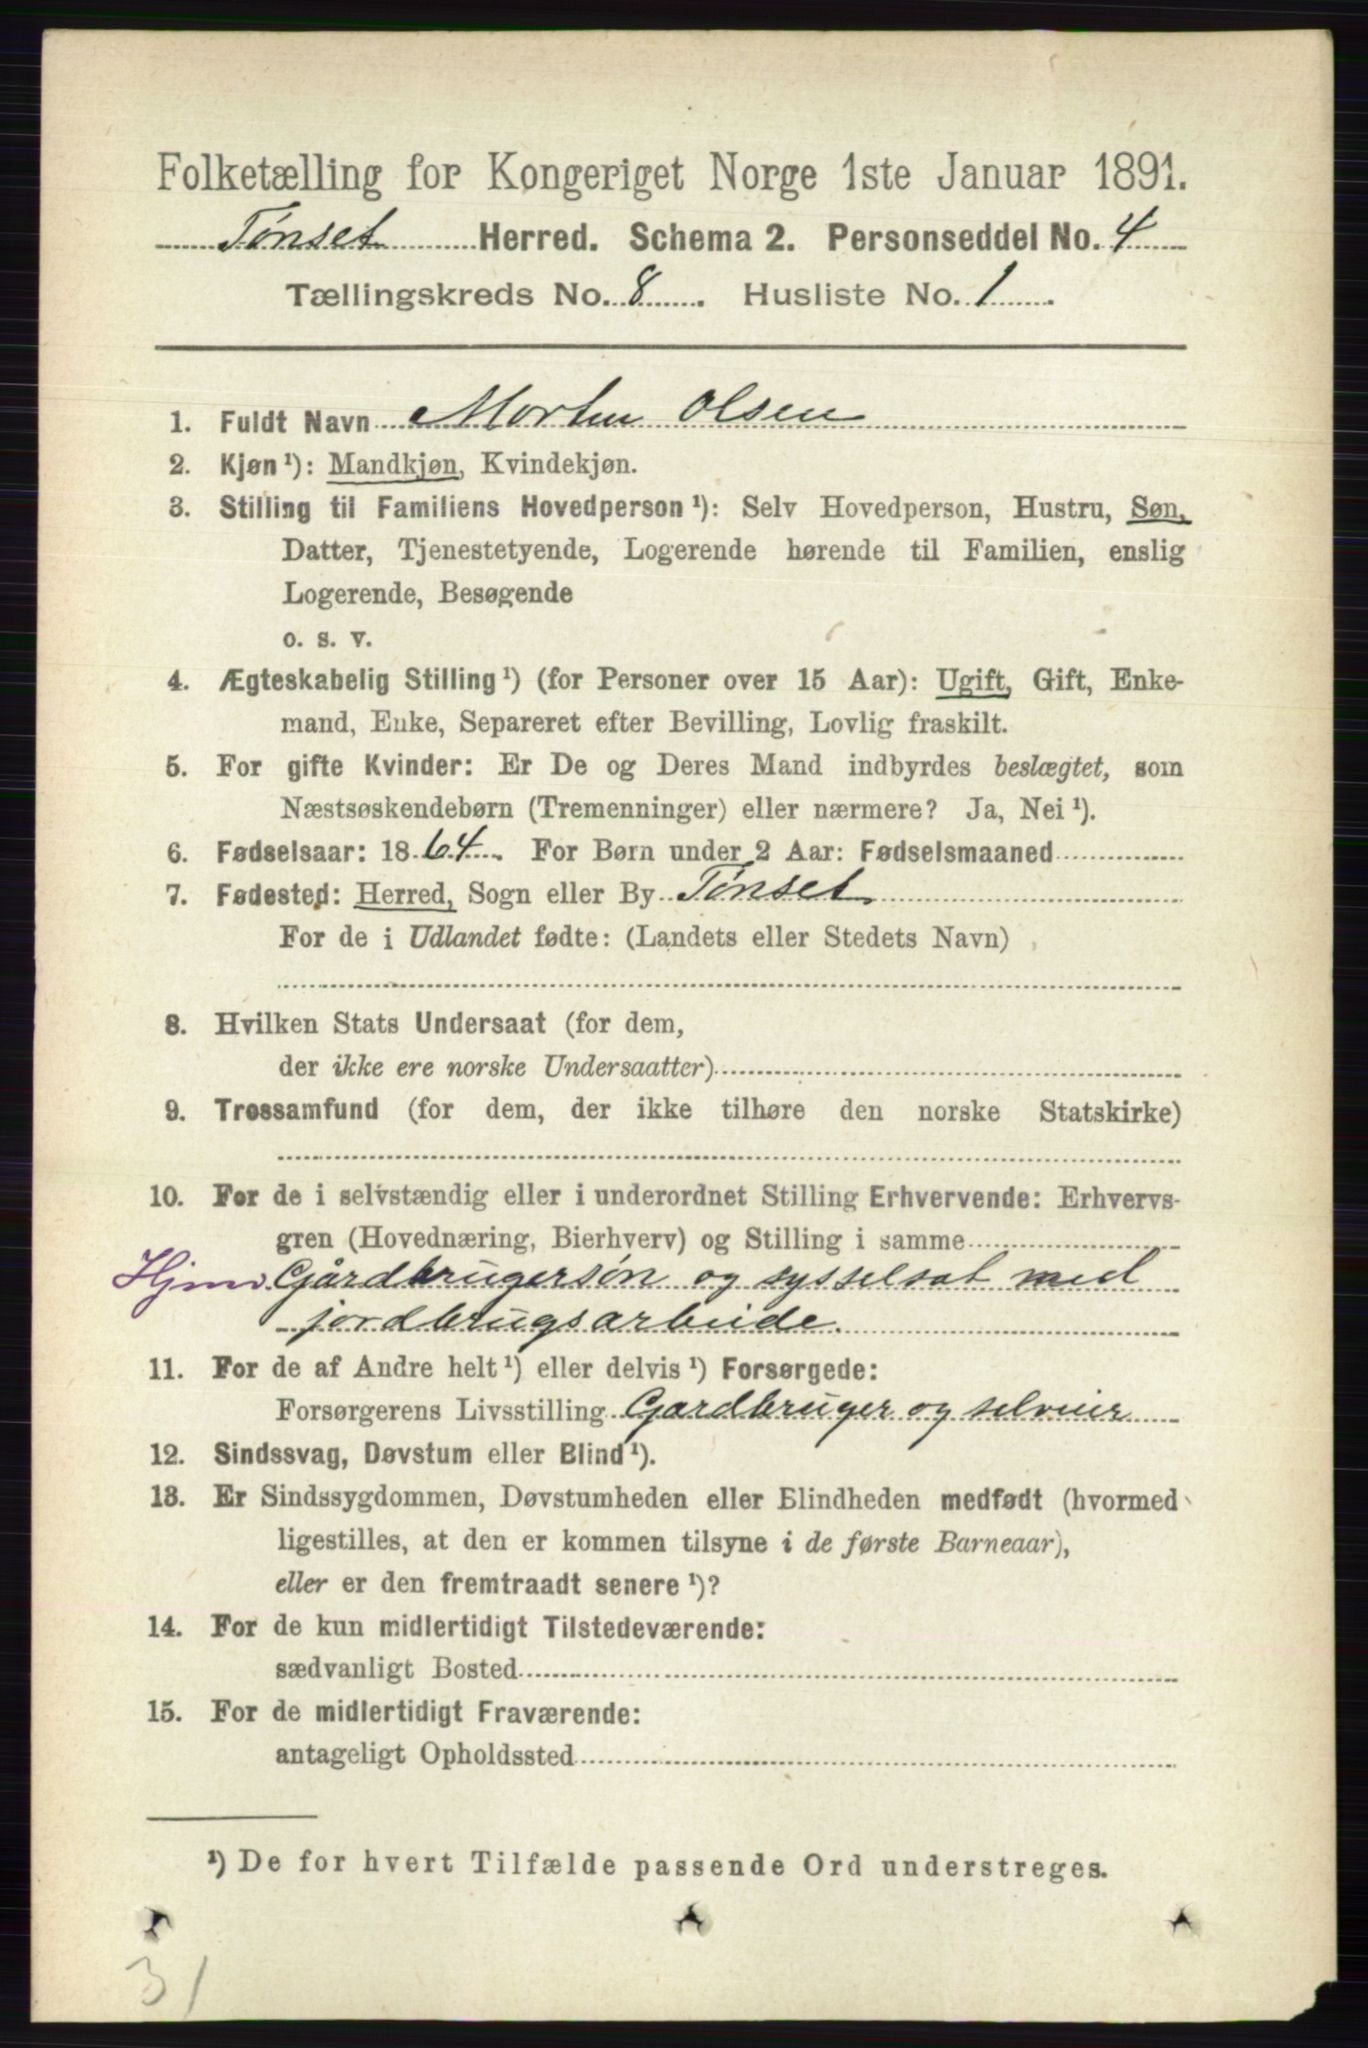 Folketælling for Kongeriget Norge 1ste Januar 1891.
Tønset Herred. Schema 2. Personseddel No. 4
Tællingskreds No. 8. Husliste No. 1.
1. Fuldt Navn Morten Olsen
2. Kjøn¹): Mandkjøn, Kvindekjøn.
3. Stilling til Familiens Hovedperson¹): Selv Hovedperson, Hustru, Søn,
Datter, Tjenestetyende, Logerende hørende til Familien, enslig
Logerende, Besøgende
o. s. v.
4. Ægteskabelig Stilling¹) (for Personer over 15 Aar): Ugift, Gift, Enke-
mand, Enke, Separeret efter Bevilling, Lovlig fraskilt.
5. For gifte Kvinder: Er De og Deres Mand indbyrdes beslægtet, som
Næstsøskendebørn (Tremenninger) eller nærmere? Ja, Nei¹).
6. Fødselsaar: 1864. For Børn under 2 Aar: Fødselsmaaned
7. Fødested: Herred, Sogn eller By Tønset.
For de i Udlandet fødte: (Landets eller Stedets Navn)
8. Hvilken Stats Undersaat (for dem,
der ikke ere norske Undersaatter)
9. Trossamfund (for dem, der ikke tilhøre den norske Statskirke)
10. For de i selvstændig eller i underordnet Stilling Erhvervende: Erhvervs-
gren (Hovednæring, Bierhverv) og Stilling i samme
Gårdbrugersøn og sysselsat med
jordbrugsarbeide.
11. For de af Andre helt¹) eller delvis¹) Forsørgede:
Forsørgerens Livsstilling Gardbruger og selveier
12. Sindssvag, Døvstum eller Blind¹).
13. Er Sindssygdommen, Døvstumheden eller Blindheden medfødt (hvormed
ligestilles, at den er kommen tilsyne i de første Barneaar),
eller er den fremtraadt senere¹)?
14. For de kun midlertidigt Tilstedeværende:
sædvanligt Bosted
15. For de midlertidigt Fraværende:
antageligt Opholdssted
¹) De for hvert Tilfælde passende Ord understreges.
31